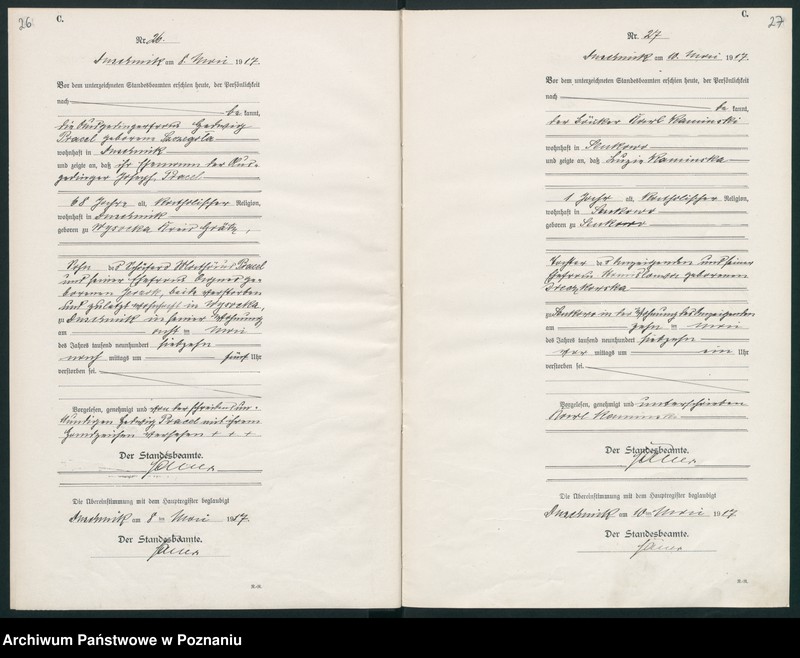 26
C.
Nr. 26.
am 8. Mai 1917.
Vor dem unterzeichneten Standesbeamten erschien heute, der Persönlichkeit
nach
be kannt,
die Ausgedingerfrau Hedwig
geborene
wohnhaft in
und zeigte an, daß ihr Ehemann der Aus-
gedinger Joseph
68 Jahre alt, katholischer Religion,
wohnhaft in
geboren zu Wysocka Kreis Grätz,
Sohn des Schäfers
und seiner Ehefrau Agnes ge-
borenen beide verstorben
und zuletzt wohnhaft in Wysocka,
zu in seiner Wohnung
am acht ten Mai
des Jahres tausend neunhundert siebzehn
nach mittags um fünf Uhr
verstorben sei.
Vorgelesen, genehmigt und von der Schreibensun-
kundigen Hedwig mit ihrem
Handzeichen versehen + + +
Der Standesbeamte.
Die Übereinstimmung mit dem Hauptregister beglaubigt
am 8 ten Mai 1917.
Der Standesbeamte.
C.
27
Nr. 27
am 10. Mai 1917.
Vor dem unterzeichneten Standesbeamten erschien heute, der Persönlichkeit
nach
be kannt,
der Karl Kaminski
wohnhaft in
und zeigte an, daß Luzie Kaminska
1 Jahr alt, katholischer Religion,
wohnhaft in
geboren zu
Tochter des Anzeigenden und seiner
Ehefrau geborenen
zu in der Wohnung des Anzeigenden
am zehn ten Mai
des Jahres tausend neunhundert siebzehn
vor mittags um ein Uhr
verstorben sei.
Vorgelesen, genehmigt und unterschrieben
Karl Kaminski
Der Standesbeamte.
Die Übereinstimmung mit dem Hauptregister beglaubigt
am 10 ten Mai 1917.
Der Standesbeamte.
Archiwum Państwowe w Poznaniu